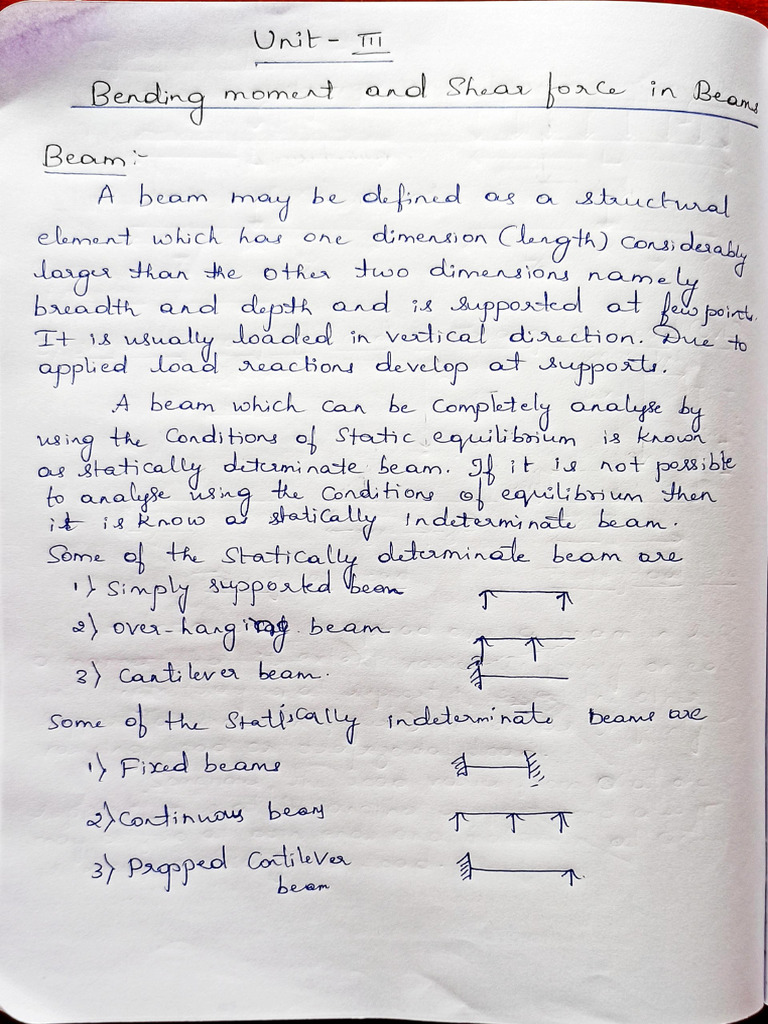 Unit - III
Bending moment and Shear force in Beams
Beam :-
A beam may be defined as a structural
element which has one dimension (length) considerably
larger than the other two dimensions namely
breadth and depth and is supported at few points.
It is usually loaded in vertical direction. Due to
applied load reactions develop at supports.
A beam which can be completely analyse by
using the conditions of static equilibrium is known
as statically determinate beam. If it is not possible
to analyse using the conditions of equilibrium then
it is know as statically indeterminate beam.
Some of the statically determinate beam are
1) Simply supported beam
2) over-hanging beam
3) Cantilever beam.
Some of the statically indeterminate beams are
1) Fixed beams
2) Continuous beams
3) Propped Cantilever
beam